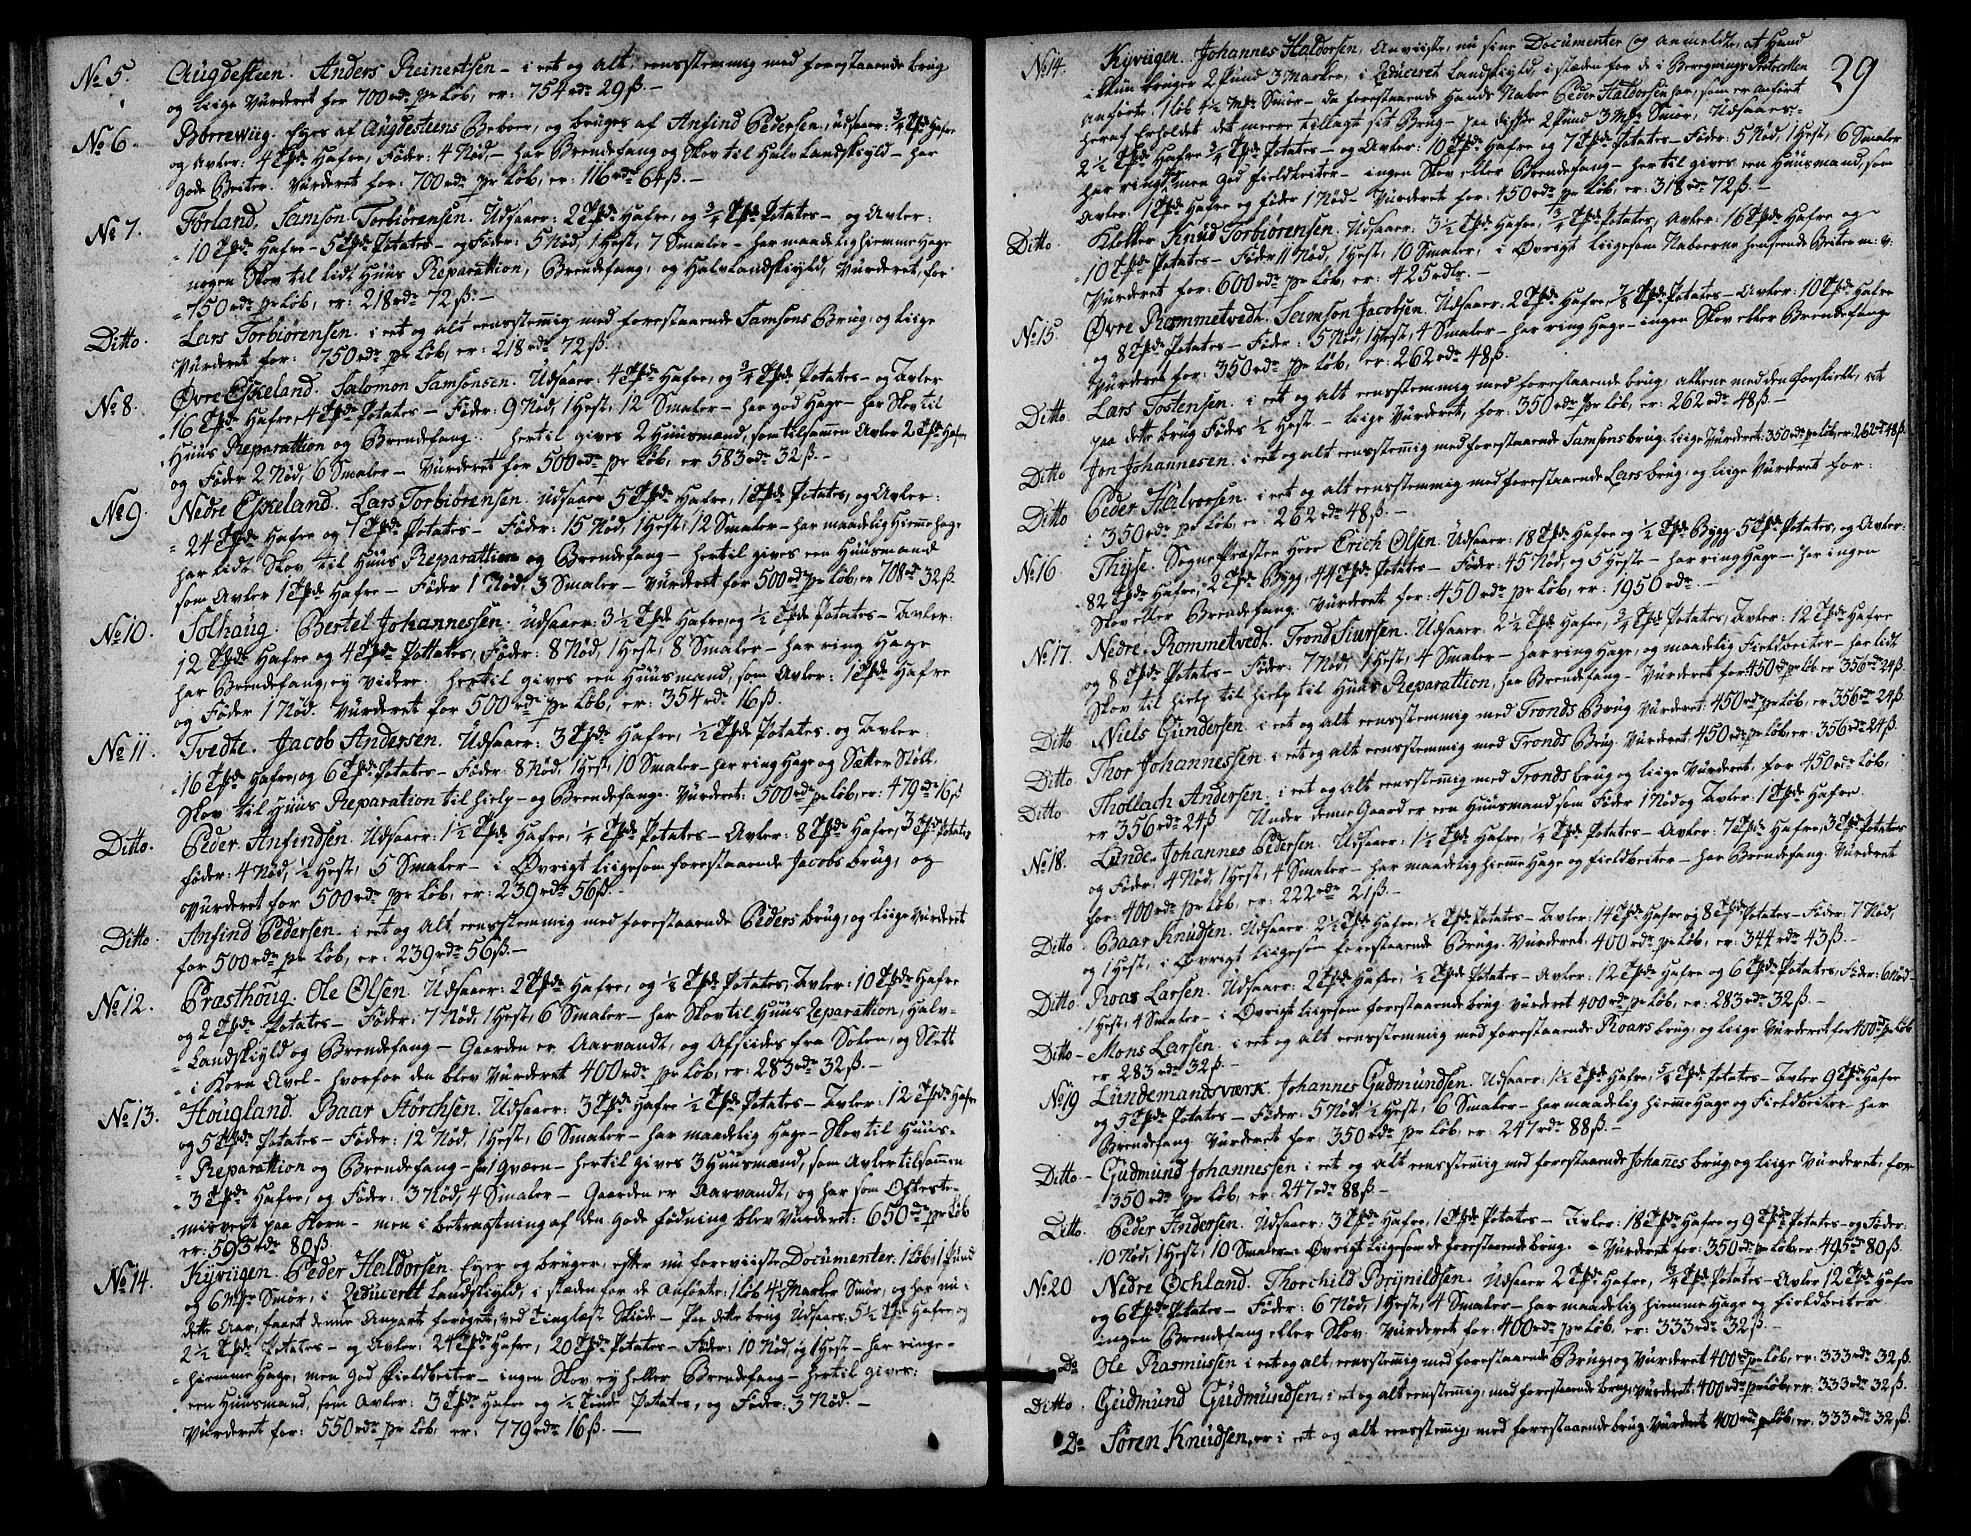 No 5. Augdesteen. Anders Reinertsen – i eet og alt eensstemmig med forestaaende brug
og liige Vürderet for 700 rdr pr Løb, er: 754 rdr 29 ß. –
No 6. Borrewiig. Eyes af Augdesteens Beboer, og bruges af Anfind Pedersen, udsaaer: 3/4 Tpdr Hafre
og Avler: 4 Tpdr Hafre, Føder: 4 Nød, – har Brendefang og Skov til Halv Landskyld – har
gode Beiter. Vürderet for: 700 rdr pr Løb, er: 116 rdr 64 ß. –
No 7. Førland. Samson Torbiørensen. Udsaaer: 2 Tpdr Hafre, og 3/4 Tpdr Potates – og Avler:
10 Tpdr Hafre – 5 Tpdr Potates – og Føder: 5 Nød, 1 Hest, 7 Smaler – har maadelig hiemme Hage
nogen Skov til lidt Huus Reparattion, Brendefang, og Halv Landskyld, Vürderet, for
750 rdr pr Løb, er: 218 rdr 72 ß. –
Ditto. Lars Torbiørensen. i eet og alt eensstemig med forestaaende Samsons Brug, og liige
Vürderet for: 750 rdr pr Løb, er: 218 rdr 72 ß.
No 8. Øvre Eskeland. Salomon Samsonsen. Udsaaer: 4 Tpdr Hafre, og 3/4 Tpdr Potates – og Avler
16 Tpdr Hafre, 4 Tpdr Potates – Føder: 9 Nød, 1 Hest, 12 Smaler – har god Hage – har Skov til
Huus Reparattion og Brendefang. hertil gives 2 Huusmænd, som tilsamen Avler 2 Tpdr Hafre
og Føder 2 Nød, 6 Smaler – Vürderet for 500 rdr pr Løb, er 583 rdr 32 ß. –
No 9. Nedre Eskeland. Lars Torbiørensen. udsaaer 5 Tpdr Hafre, 1 Tpdr Potates, og Avler:
24 Tpdr Hafre og 7 Tpdr Potates – Føder: 15 Nød, 1 Hest, 12 Smaler – har maadelig Hiemehage
har lidt Skov til Huus Reparattion og Brendefang – hertil gives een Huusmand
som Avler 1 Tpdr Hafre – Føder 1 Nød, 3 Smaler – Vürderet for 500 rdr pr Løb, er 708 rdr 32 ß.
No 10. Solhaug. Bertel Johannessen. udsaaer: 3 1/2 Tpdr Hafre, og 1/2 Tpdr Potates – Avler:
12 Tpdr Hafre og 4 Tpdr Pottates, Føder: 8 Nød, 1 Hest, 8 Smaler – har ring Hage
har Brendefang, ey videre. hertil gives een Huusmand, som Avler: 1 Tpdr Hafre
og Føder 1 Nød. Vürderet for 500 rdr pr Løb, er: 354 rdr 16 ß.
No 11. Tvedte. Jacob Andersen. Udsaaer: 3 Tpdr Hafre, 1/2 Tpdr Potates. og Avler:
16 Tpdr Hafre, og 6 Tpdr Potates – Føder: 8 Nød, 1 Hest, 10 Smaler – har ring Hage og Sætter Støll,
Skov til Huus Reparation til hielp – og Brendefang. Vürderet: 500 rdr pr Løb, er: 479 rdr 16 ß
Ditto. Peder Anfindsen. Udsaaer: 1 1/2 Tpdr Hafre, 1/4 Tpdr Potates – Avler: 8 Tpdr Hafre, 3 Tpdr Potates
Føder: 4 Nød, 1/2 Hest, 5 Smaler – i Øvrigt liigesom forestaaende Jacobs brug, og
Vürderet for 500 rdr pr Løb, er: 239 rdr 56 ß. –
Ditto. Anfind Pedersen. i eet og alt eensstemmig med forestaaende Peders brug, og liige Vürderet
for 500 rdr pr Løb, er: 239 rdr 56 ß. –
No 12. Prasthoug. Ole Olsen. Udsaaer: 2 Tpdr Hafre, og 1/8 Tpdr Potates, Avler: 10 Tpdr Hafre
og 2 Tpdr Potates – Føder: 7 Nød, 1 Hest, 6 Smaler – har Skov til Huus Reparattion, Halv-
Landskyld og Brendefang – Gaarden er Aarvandt, og Afsiides fra Solen, og Slett
i Korn Avel – hvorfor den blev Vürderet 400 rdr pr Løb, er: 283 rdr 32 ß. –
No 13. Hougland. Baar Størchsen. Udsaaer: 3 Tpdr Hafre 1/2 Tpdr Potates – Avler: 12 Tpdr Hafre
og 5 Tpdr Potates – Føder: 12 Nød, 1 Hest, 6 Smaler – har maadelig Hage – Skov til Huus-
Reparattion og Brendefang – har 1 qværn – hertil gives 3 Huusmænd, som Avler tilsamen
3 Tpdr Hafre, og Føder: 3 Nød, 4 Smaler – Gaarden er Aarvandt, og har som Oftest-
misvext paa Korn – men i betragtning af den gode fødning blev Vürderet: 650 rdr pr Løb
er: 595 rdr 80 ß.
No 14. Kyviigen. Peder Haldorsen. Eyer og bruger, efter nu foreviiste Documenter, 1 Løb, 1 Pund
og 6 Mkr Smør, i Reduceret Landskyld, i stæden for de Anførte: 1 Løb 4 1/2 Marker Smør, og har nu i
dette Aar, faaet denne Anpart forøget, ved Tinglæst Skiøde – Paa dette brug Udsaaes: 5 1/2 Tpdr Hafre, og
2 1/2 Tpdr Potates – og Avler: 24 Tpdr Hafre, 20 Tpdr Potates – Føder: 10 Nød, og 1 Hest – har ringe
hiemme Hage, men god Fieldbeiter – ingen Skov ey heller Brendefang – hertil gives:
een Huusmand, som Avler: 3 Tpdr Hafre og 1/2 Tønde Potates, og Føder: 3 Nød. –
Vürderet for: 550 rdr pr Løb, er: 779 rdr 16 ß. –
29
No 14. Kyviigen. Johannes Haldorsen, Anviiste, nu sine Documenter og Anmeldte, at Hand
ikkun bruger 2 Pund 3 Marker, i Reduceret Landskyld, i stæden for de i Beregnings Protocollen
anførte, 1 Løb 4 1/2 Mkr Smør – da forestaaende Hands Nabor Peder Haldorsen har, som er Anført
heraf Erholdet det meere tillagt sit Brug – paa disse 2 Pund 3 Mkr Smør, Udsaaes:
2 1/2 Tpdr Hafre 3/4 Tpdr Potates – og Avler: 10 Tpdr Hafre og 7 Tpdr Potates – Føder: 5 Nød 1 Hest, 6 Smaler
har ring men god Fieldbeiter – ingen Skov eller Brendefang – hertil gives een Huusmand, som
Avler: 1 Tpdr Hafre og føder 1 Nød – Vürderet for: 450 rdr pr Løb, er: 318 rdr 72 ß. –
Ditto. Kletter Knud Torbiørensen. Udsaaer: 3 1/2 Tpdr Hafre, 3/4 Tpdr Potates, Avler: 16 Tpdr Hafre og
10 Tpdr Potates – Føder 11 Nød, 1 Hest, 10 Smaler, i Øvrigt liigesom Naboerne henseende Beiter m: v:
Vürderet for: 600 rdr pr Løb, er: 425 rdlr. –
No 15. Øvre Rommetvedt. Samson Jacobsen. Udsaaer: 2 Tpdr Hafre, 7/8 Tpdr Potates – Avler: 10 Tpdr Hafre
og 8 Tpdr Potates – Føder: 5 Nød, 1 Hest, 4 Smaler – har ring Hage – ingen Skov eller Brendefang
Vürderet for: 350 rdr pr Løb, er: 262 rdr 48 ß.
Ditto Lars Tostensen. i eet og alt eensstemmig med forestaaende brug, allene med den forskiell, at
paa dette brug Fødes 1/2 Hest. – liige Vürderet, for: 350 rdr pr Løb, er: 262 rdr 48 ß. –
Ditto Jon Johannesen. i eet og alt eensstemig med forestaaende Samsons brug. liige Vürderet: 350 rdr pr Løb, er 262 rdr 48 ß.
Ditto Peder Halvorsen. i eet og alt eensstemmig med forestaaende Lars brug, og liige Vürderet for:
350 rdr pr Løb, er: 262 rdr 48 ß. –
No 16. Thysse. Sognepræsten Herr Erich Olsen. Udsaaer: 18 Tpdr Hafre og 1/2 Tpdr Bygg, 5 Tpdr Potates, og Avler:
82 Tpdr Hafre, 2 Tpdr Bygg, 44 Tpdr Potates – Føder: 45 Nød, og 5 Heste – har ring Hage – har ingen
Skov eller Brendefang. Vürderet for: 450 rdr pr Løb, er: 1950 rdr. –
No 17. Nedre, Rommetvedt. Trond Siursen. Udsaaer: 2 1/2 Tpdr Hafre, 3/4 Tpdr Potates, Avler: 12 Tpdr Hafre
og 8 Tpdr Potates – Føder: 7 Nød, 1 Hest, 4 Smaler – har ring Hage, og maadelig Fieldbeiter – har lidt
Skov til hielp til hielp til Huus Reparattion, har Brendefang – Vürderet for 450 rdr pr Løb er 356 rdr 24 ß.
Ditto. Niels Gundersen. i eet og alt eensstemmig med Tronds Brug. Vürderet: 450 rdr pr Løb, er 356 rdr 24 ß
Ditto. Thor Johannessen. i eet og alt eensstemmig med Tronds Brug. Vürderet: 450 rdr pr Løb er: 356 rdr 24 ß.
Ditto. Thollach Andersen. i eet og alt eensstemig med Tronds brug og liige Vürderet. for 450 rdr Løb.
er 356 rdr 24 ß. Under denne Gaard er een Huusmand som Føder 1 Nød og Avler: 1 Tpdr Hafre.
No 18. Lunde. Johannes Pedersen. Udsaaer: 1 1/2 Tpdr Hafre, 1/4 Tpdr Potates – Avler: 7 Tpdr Hafre, 3 Tpdr Potates
og Føder: 4 Nød, 1 Hest, 4 Smaler – har maadelig hieme Hage og Fieldbeiter – har Brendefang. Vürderet
for: 400 rdr pr Løb, er: 222 rdr 21 ß. –
Ditto. Baar Knudsen. Udsaaer: 2 1/2 Tpdr Hafre, 1/2 Tpdr Potates – Avler: 14 Tpdr Hafre og 8 Tpdr Potates – Føder: 7 Nød,
og 1 Hest, i Øvrigt liigesom forestaaende Brug. Vürderet: 400 rdr pr Løb, er: 344 rdr 43 ß. –
Ditto. Roar Larsen. Udsaaer: 2 Tpdr Hafre, 1/2 Tpdr Potates – Avler: 12 Tpdr Hafre og 6 Tpdr Potates, Føder: 6 Nød
1 Hest, 4 Smaler – i Øvrigt liigesom forestaaende brug. Vürderet 400 rdr pr Løb, er: 283 rdr 32 ß. –
Ditto – Mons Larsen. i eet og alt eensstemmig med forestaaende Roars brug, og liige Vürderet for 400 rdr pr Løb
er 283 rdr 32 ß. –
No 19 Lundemandsværk. Johannes Gudmundsen. Udsaaer: 1 1/2 Tpdr Hafre, 5/8 Tpdr Potates – Avler 9 Tpdr Hafre
og 5 Tpdr Potates – Føder: 5 Nød, 1/2 Hest, 6 Smaler – har maadelig hieme Hage og Fieldbeiter – har
Brendefang. Vürderet for: 350 rdr pr Løb, er: 247 rdr 88 ß. –
Ditto – Gudmund Johannessen i eet og alt eensstemig med forestaaende Johañes brug og liige Vürderet, for
350 rdr pr Løb, er: 247 rdr 88 ß –
Ditto. Peder Andersen. Udsaaer: 3 Tpdr Hafre, 1 Tpdr Potates – Avler: 18 Tpdr Hafre og 9 Tpdr Potates – og Føder:
10 Nød, 1 Hest, 10 Smaler – i Øvrigt liigesom de forestaaende brug. – Vürderet for: 350 rdr pr Løb, er: 495 rdr 80 ß.
No 20 Nedre Øchland. Thorchild Brynildsen. Udsaaer 2 Tpdr Hafre, 3/4 Tpdr Potates – Avler 12 Tpdr Hafre
og 6 Tpdr Potates – Føder: 6 Nød, 1 Hest, 4 Smaler – har maadelig hiemme Hage og fieldbeiter
ingen Brendefang eller Skov. Vürderet for: 400 rdr pr Løb, er: 333 rdr 32 ß. –
Do Ole Rasmussen i eet og alt, eensstemig med forestaaende Brug, og Vürderet 400 rdr pr Løb, er: 333 rdr 32 ß.
Ditto. Gudmund Gudmundsen, i eet og alt eensstemig, med forestaaende brug, Vürderet: 400 rdr pr Løb, er: 333 rdr 32 ß.
Do Søren Knudsen, er i eet og alt eensstemig, med forestaaende brug. Vürderet 400 rdr pr Løb, er: 333 rdr 32 ß.